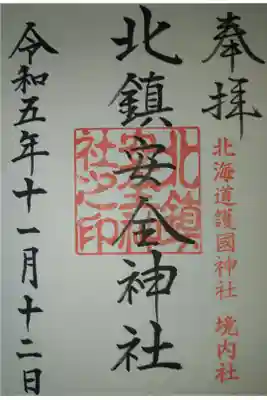 奉拝
北海道護國神社 境内社
北鎮安全神社
北鎮安全神社之印
令和五年十一月十二日